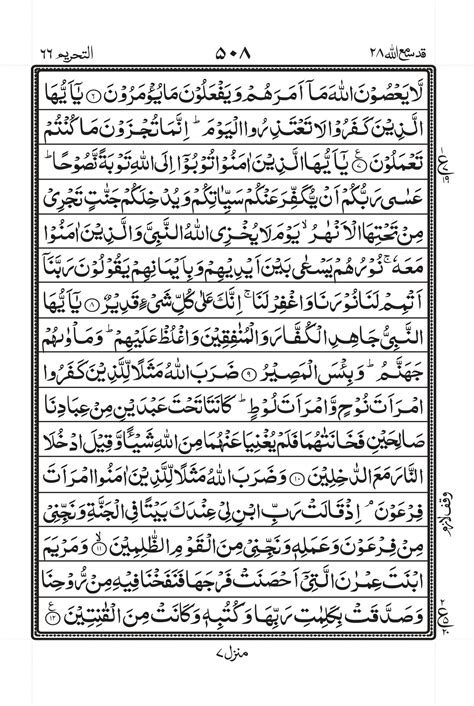 قد سمع الله ٢٨ ٥٠٨ التحريم ٦٦
لَّا يَعْصُوْنَ اللّٰهَ مَاۤ اَمَرَهُمْ وَيَفْعَلُوْنَ مَا يُؤْمَرُوْنَ ۝٦ يٰۤاَيُّهَا
الَّذِيْنَ كَفَرُوْا لَا تَعْتَذِرُوا الْيَوْمَ ؕ اِنَّمَا تُجْزَوْنَ مَا كُنْتُمْ
تَعْمَلُوْنَ ۝٧ يٰۤاَيُّهَا الَّذِيْنَ اٰمَنُوْا تُوْبُوْۤا اِلَى اللّٰهِ تَوْبَةً نَّصُوْحًا ؕ
عَسٰى رَبُّكُمْ اَنْ يُّكَفِّرَ عَنْكُمْ سَيِّاٰتِكُمْ وَيُدْخِلَكُمْ جَنّٰتٍ تَجْرِيْ
مِنْ تَحْتِهَا الْاَنْهٰرُ ۙ يَوْمَ لَا يُخْزِى اللّٰهُ النَّبِيَّ وَالَّذِيْنَ اٰمَنُوْا
مَعَهٗ ۚ نُوْرُهُمْ يَسْعٰى بَيْنَ اَيْدِيْهِمْ وَبِاَيْمَانِهِمْ يَقُوْلُوْنَ رَبَّنَاۤ
اَتْمِمْ لَنَا نُوْرَنَا وَاغْفِرْ لَنَا ۚ اِنَّكَ عَلٰى كُلِّ شَيْءٍ قَدِيْرٌ ۝٨ يٰۤاَيُّهَا
النَّبِيُّ جَاهِدِ الْكُفَّارَ وَالْمُنٰفِقِيْنَ وَاغْلُظْ عَلَيْهِمْ ؕ وَمَاْوٰىهُمْ
جَهَنَّمُ ؕ وَبِئْسَ الْمَصِيْرُ ۝٩ ضَرَبَ اللّٰهُ مَثَلًا لِّلَّذِيْنَ كَفَرُوا
امْرَاَتَ نُوْحٍ وَّامْرَاَتَ لُوْطٍ ؕ كَانَتَا تَحْتَ عَبْدَيْنِ مِنْ عِبَادِنَا
صَالِحَيْنِ فَخَانَتٰهُمَا فَلَمْ يُغْنِيَا عَنْهُمَا مِنَ اللّٰهِ شَيْـًٔا وَّقِيْلَ ادْخُلَا
النَّارَ مَعَ الدّٰخِلِيْنَ ۝١٠ وَضَرَبَ اللّٰهُ مَثَلًا لِّلَّذِيْنَ اٰمَنُوا امْرَاَتَ
فِرْعَوْنَ ۘ اِذْ قَالَتْ رَبِّ ابْنِ لِيْ عِنْدَكَ بَيْتًا فِى الْجَنَّةِ وَنَجِّنِيْ
مِنْ فِرْعَوْنَ وَعَمَلِهٖ وَنَجِّنِيْ مِنَ الْقَوْمِ الظّٰلِمِيْنَ ۝١١ وَمَرْيَمَ
ابْنَتَ عِمْرٰنَ الَّتِيْۤ اَحْصَنَتْ فَرْجَهَا فَنَفَخْنَا فِيْهِ مِنْ رُّوْحِنَا
وَصَدَّقَتْ بِكَلِمٰتِ رَبِّهَا وَكُتُبِهٖ وَكَانَتْ مِنَ الْقٰنِتِيْنَ ۝١٢
وقف لازم
منزل ٧